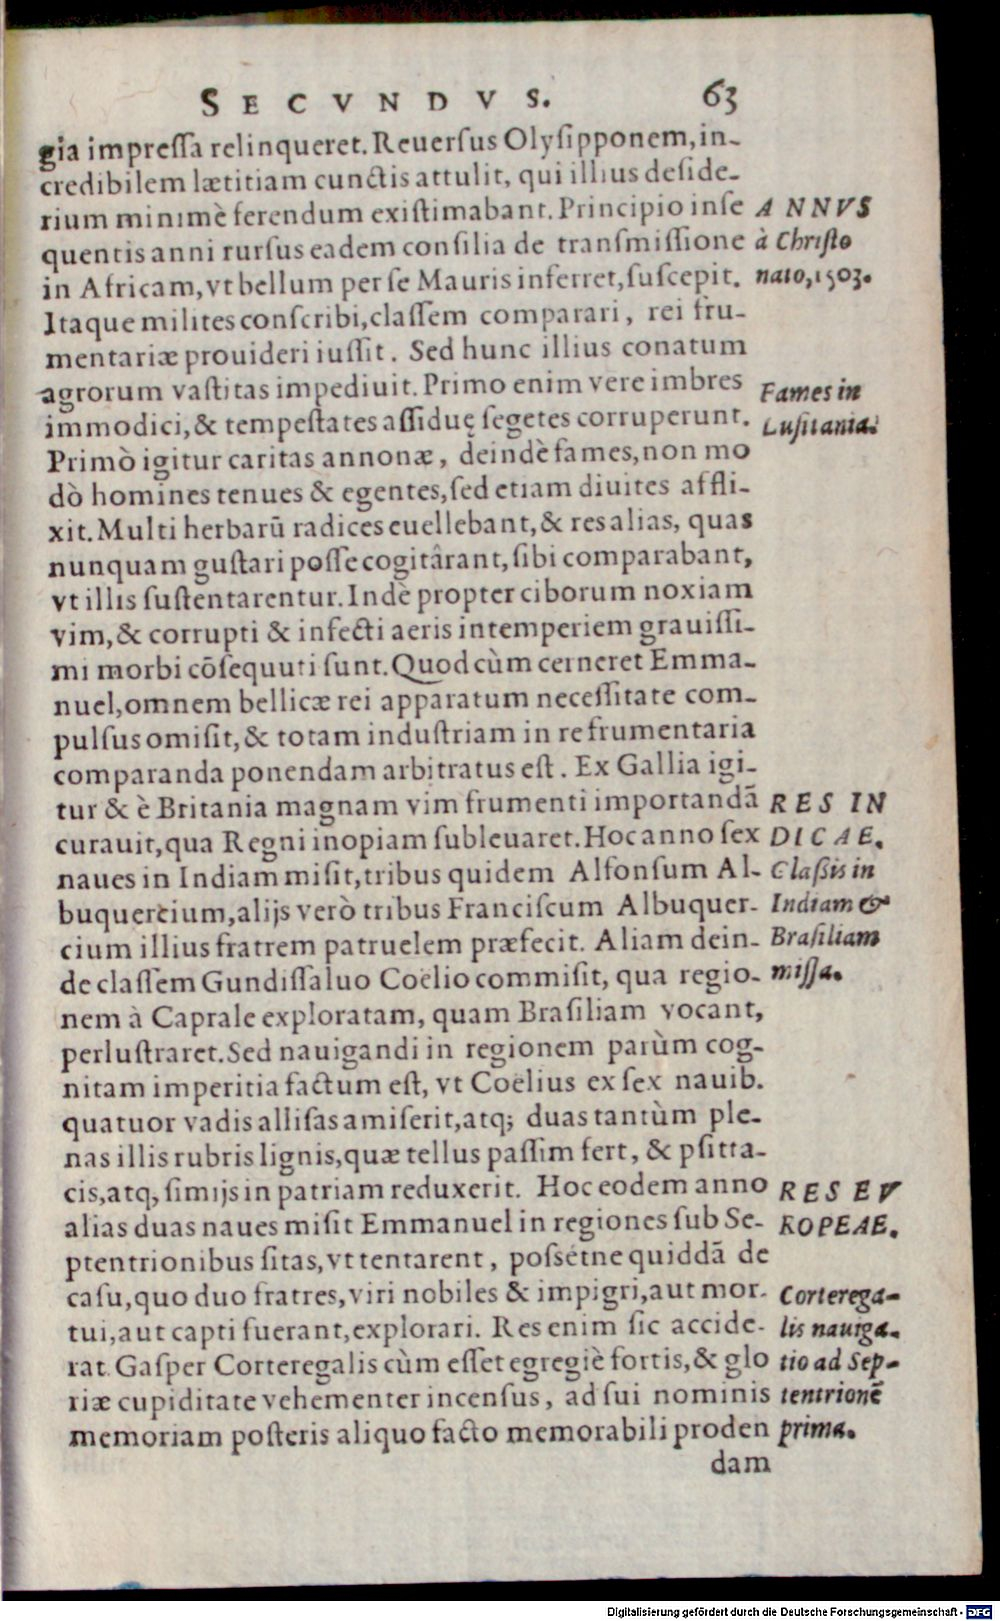 SECVNDVS. 63
gia impreſſa relinqueret. Reuerſus Olyſipponem, in-
credibilem lætitiam cunctis attulit, qui illius deſide-
rium minimè ferendum exiſtimabant. Principio inſe
quentis anni rurſus eadem conſilia de tranſmiſſione
in Africam, vt bellum per ſe Mauris inferret, ſuſcepit.
Itaque milites conſcribi, claſſem comparari, rei fru-
mentariæ prouideri iuſſit. Sed hunc illius conatum
agrorum vaſtitas impediuit. Primo enim vere imbres
immodici, & tempeſtates aſſiduę ſegetes corruperunt.
Primò igitur caritas annonæ, deindè fames, non mo
dò homines tenues & egentes, ſed etiam diuites affli-
xit. Multi herbarū radices euellebant, & res alias, quas
nunquam guſtari poſſe cogitârant, ſibi comparabant,
vt illis ſuſtentarentur. Indè propter ciborum noxiam
vim, & corrupti & infecti aeris intemperiem grauiſſi-
mi morbi cōſequuti ſunt. Quod cùm cerneret Emma-
nuel, omnem bellicæ rei apparatum neceſſitate com-
pulſus omiſit, & totam induſtriam in re frumentaria
comparanda ponendam arbitratus eſt. Ex Gallia igi-
tur & è Britania magnam vim frumenti importandā
curauit, qua Regni inopiam ſubleuaret. Hoc anno ſex
naues in Indiam miſit, tribus quidem Alfonſum Al-
buquercium, alijs verò tribus Franciſcum Albuquer-
cium illius fratrem patruelem præfecit. Aliam dein-
de claſſem Gundiſſaluo Coëlio commiſit, qua regio-
nem à Caprale exploratam, quam Braſiliam vocant,
perluſtraret. Sed nauigandi in regionem parùm cog-
nitam imperitia factum eſt, vt Coëlius ex ſex nauib.
quatuor vadis alliſas amiſerit, atq; duas tantùm ple-
nas illis rubris lignis, quæ tellus paſſim fert, & pſitta-
cis, atq; ſimijs in patriam reduxerit. Hoc eodem anno
alias duas naues miſit Emmanuel in regiones ſub Se-
ptentrionibus ſitas, vt tentarent, poſsétne quiddā de
caſu, quo duo fratres, viri nobiles & impigri, aut mor-
tui, aut capti fuerant, explorari. Res enim ſic accide-
rat. Gaſper Corteregalis cùm eſſet egregiè fortis, & glo
riæ cupiditate vehementer incenſus, ad ſui nominis
memoriam poſteris aliquo facto memorabili proden
dam
ANNVS
à Chriſto
nato, 1503.
Fames in
Luſitania.
RES IN
DICAE.
Claßis in
Indiam &
Braſiliam
miſſa.
RES EV
ROPEAE.
Corterega-
lis nauiga-
tio ad Sep-
tentrionē
prima.
Digitalisierung gefördert durch die Deutsche Forschungsgemeinschaft - DFG